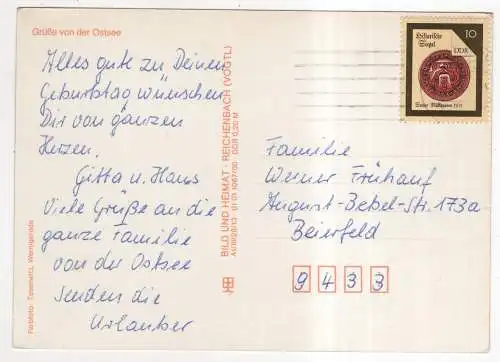 Grüße von der Ostsee
Alles gute zu Deinem
Geburtstag wünschen
Dir von ganzen
Herzen,
Gitta u. Hans
Viele Grüße an die
ganze Familie
von der Ostsee
senden die
Urlauber
BILD UND HEIMAT · REICHENBACH (VOGTL)
Historische
Siegel
10
DDR
Familie
Werner Frühauf
August-Bebel-Str. 173a
Beierfeld
9433